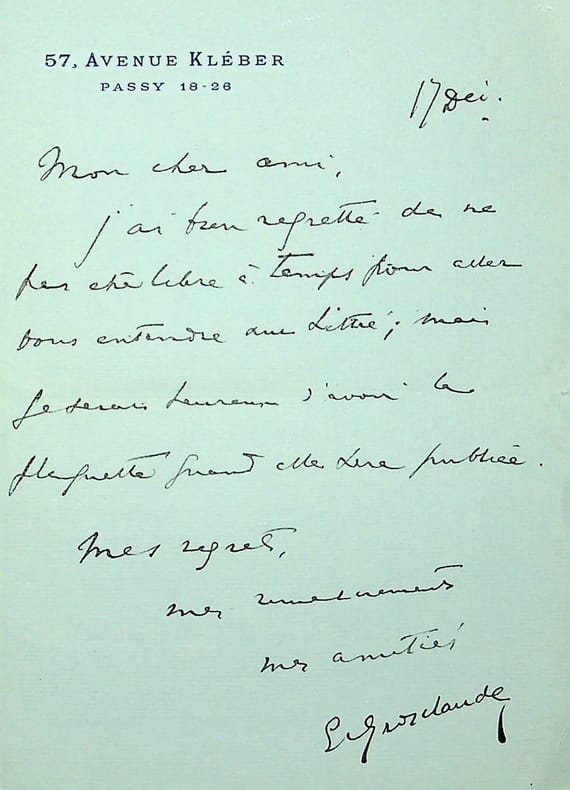 57, AVENUE KLÉBER
PASSY 18-26
17 Déc.
Mon cher ami,
j'ai bien regretté de ne
pas être libre à temps pour aller
vous entendre sur Littré ; mais
je serais heureux d'avoir la
plaquette quand elle sera publiée.
Mes regrets,
mes remerciements
mes amitiés
E. Grosclaude